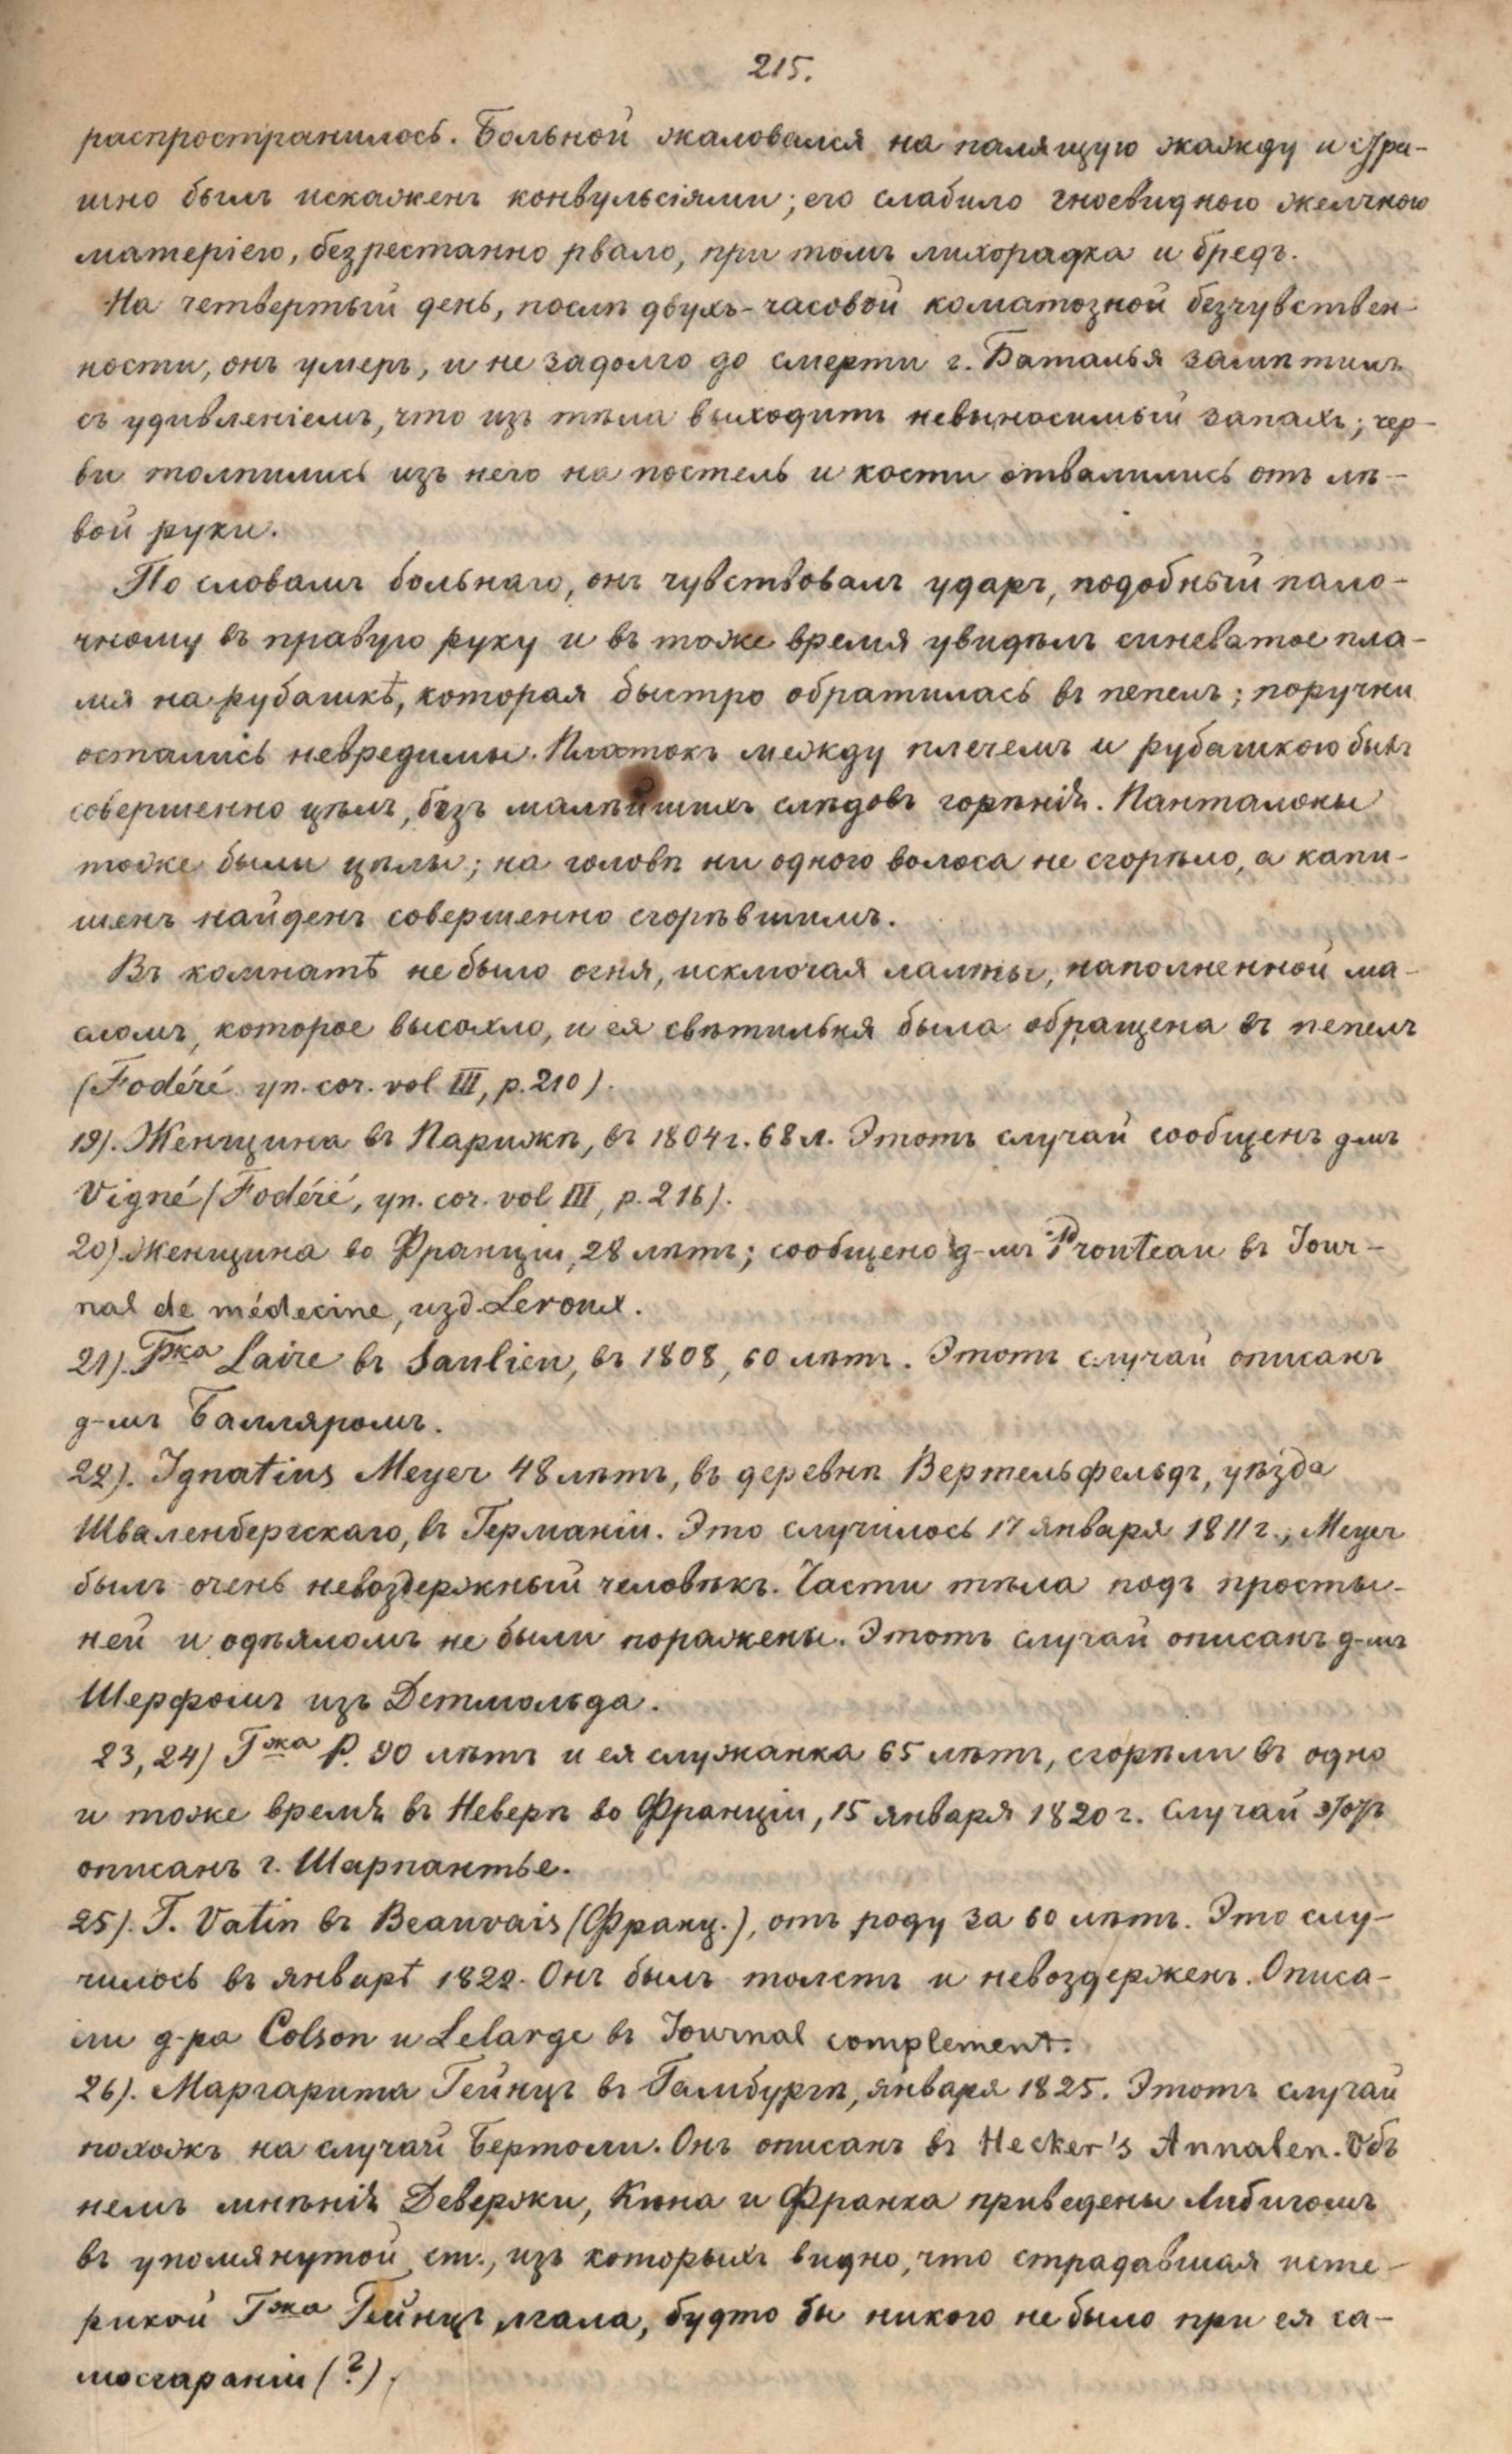 215.
распространилось. Больной жаловался на палящую жажду и стра-
шно былъ искаженъ конвульсіями; его слабило гноевидною желчною
матеріею, безрестанно рвало, при томъ лихорадка и бредъ.
На четвертый день, послѣ двухъ-часовой коматозной безчувствен-
ности, онъ умеръ, и не задолго до смерти г. Баталья замѣтилъ
съ удивленіемъ, что изъ тѣла выходитъ невыносимый запахъ; чер-
ви толпились изъ него на постель и кости отвалились отъ лѣ-
вой руки.
По словамъ больнаго, онъ чувствовалъ ударъ, подобный пало-
чному въ правую руку и въ тоже время увидѣлъ синеватое пла-
мя на рубашкѣ, которая быстро обратилась въ пепелъ; поручни
остались невредимы. Платокъ между плечемъ и рубашкою былъ
совершенно цѣлъ, безъ малѣйшихъ слѣдовъ горѣнія. Панталоны
тоже были цѣлы; на головѣ ни одного волоса не сгорѣло, а капи-
шенъ найденъ совершенно сгорѣвшимъ.
Въ комнатѣ не было огня, исключая лампы, наполненной ма-
сломъ, которое высохло, и ея свѣтильня была обращена въ пепелъ
(Fodéré уп. соч. vol III, p. 210).
19). Женщина въ Парижѣ, въ 1804 г. 68 л. Этотъ случай сообщенъ д-мъ
Vigné (Fodéré, уп. соч. vol III, p. 216).
20) Женщина во Франціи, 28 лѣтъ; сообщено д-мъ Prouteau въ Jour-
nal de médecine, изд. Leroux.
21). Гжа Laire въ Saulieu, въ 1808, 60 лѣтъ. Этотъ случай описанъ
д-мъ Балляромъ.
22). Ignatius Meyer 48 лѣтъ, въ деревнѣ Вертельфельдъ, уѣзда
Шваленбергскаго, въ Германіи. Это случилось 17 января 1811 г., Meyer
былъ очень невоздержный человѣкъ. Части тѣла подъ просты-
ней и одѣяломъ не были поражены. Этотъ случай описанъ д-мъ
Шерфомъ изъ Детмольда.
23, 24) Гжа Р. 90 лѣтъ и ея служанка 65 лѣтъ, сгорѣли въ одно
и тоже время въ Неверѣ во Франціи, 15 января 1820 г. Случай этотъ
описанъ г. Шарпантье.
25). Г. Vatin въ Beauvais (Франц.), отъ роду за 60 лѣтъ. Это слу-
чилось въ январѣ 1822. Онъ былъ толстъ и невоздерженъ. Описа-
ли д-ра Colson и Lelarge въ Journal complement.
26). Маргарита Гейнцъ въ Гамбургѣ, января 1825. Этотъ случай
похожъ на случай Бертоли. Онъ описанъ въ Hecker's Annalen. Объ
немъ мнѣнія Девержи, Кюна и Франка приведены Либигомъ
въ упомянутой ст., изъ которыхъ видно, что страдавшая исте-
рикой Гжа Гейнцъ лгала, будто бы никого не было при ея са-
мосгараніи (?).